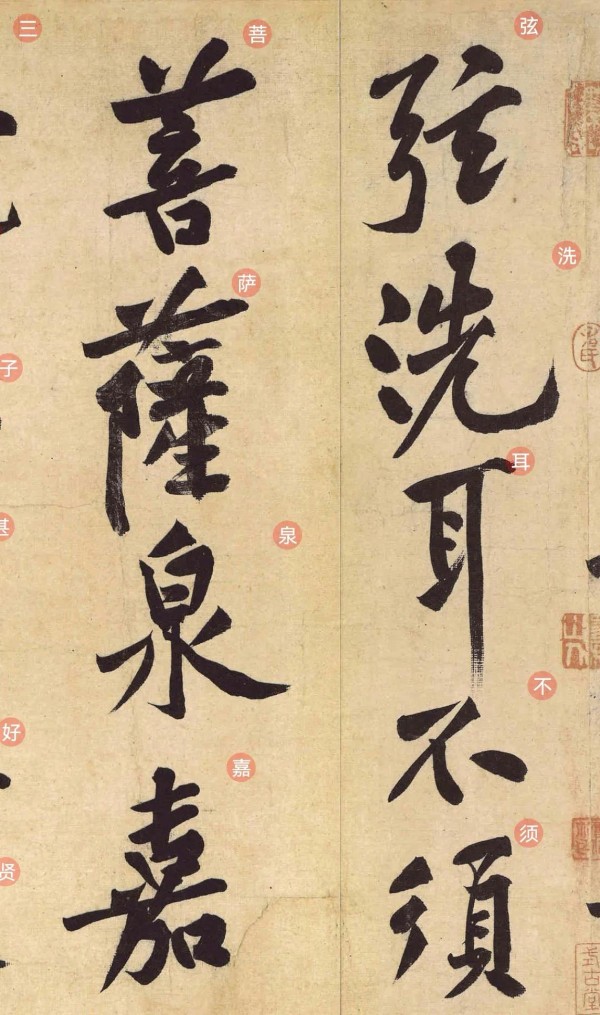 弦洗耳不須
菩薩泉嘉
弦
洗
耳
不
须
菩
萨
泉
嘉
三
子
甚
好
贤
式古堂